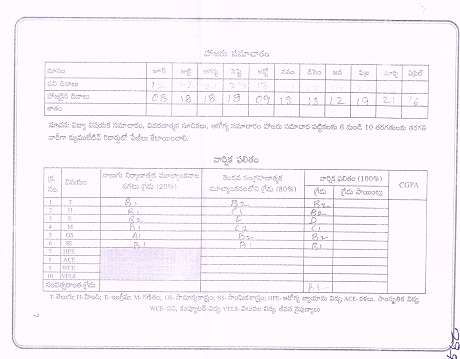 హాజరు సమాచారం
మాసం జూన్ జులై ఆగస్టు సెప్టె అక్టో నవం డిసెం జన ఫిబ్ర మార్చి ఏప్రిల్
పని దినాలు
హాజరైన దినాలు 03 18 18 19 09 13 12 19 21 16
శాతం
నూచన: విద్యా విషయక సమాచారం, వివరణాత్మక సూచికలు, ఆరోగ్య సమాచారం హాజరు సమాచార పట్టికలకు 6 నుండి 10 తరగతులకు తరగతి
వారీగా క్యుములేటివ్ రికార్డులో పేజీలు కేటాయించాలి.
వార్షిక ఫలితం
క్ర. సం. విషయం నాలుగు నిర్మాణాత్మక మూల్యాంకనాల సగటు గ్రేడు (20%) రెండవ సంగ్రహణాత్మక మూల్యాంకనంలోని గ్రేడు (80%) వార్షిక ఫలితం (100%) CGPA
గ్రేడు గ్రేడు పాయింట్లు
1 T B1 B2 B2
2 H B1 C1 B2
3 E B2 D
4 M B1 C2 C1
5 GS A1 B2 B2
6 SS B1 B1 B1
7 HPE
8 ACE
9 WCE
10 VELS
సంవత్సరాంత గ్రేడు B1
T-తెలుగు; H-హింది; E-ఇంగ్లీషు; M-గణితం; GS-సామాన్యశాస్త్రం; SS-సాంఘికశాస్త్రం; HPE-ఆరోగ్య వ్యాయామ విద్య; ACE-కళలు, సాంస్కృతిక విద్య;
WCE-పని, కంప్యూటర్ విద్య; VELS-విలువల విద్య, జీవన నైపుణ్యాలు